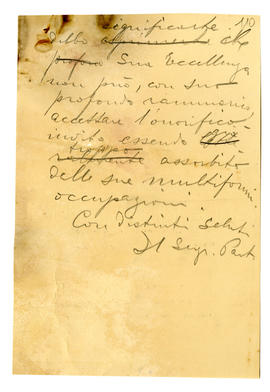 significarle 110
debbo che
Sua Eccellenza
non può, con suo
profondo rammarico
accettare l'onorifico
invito essendo
troppo
assorbito
dalle sue multiformi
occupazioni.
Con distinti saluti
Il Segr. Part.